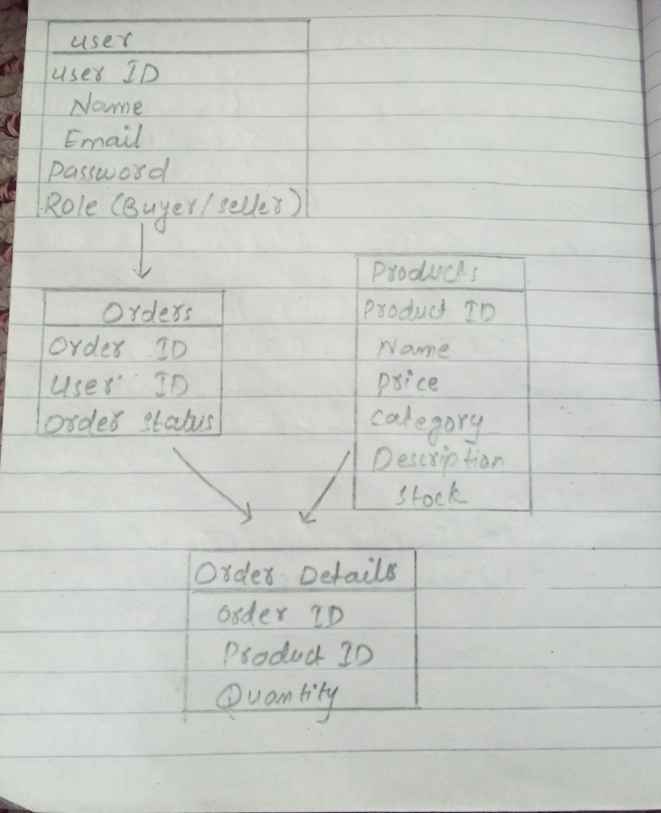 user
user ID
Name
Email
Password
Role (Buyer/seller)
Orders
Order ID
User ID
Order Status
Products
Product ID
Name
price
category
Description
Stock
Order Details
Order ID
Product ID
Quantity